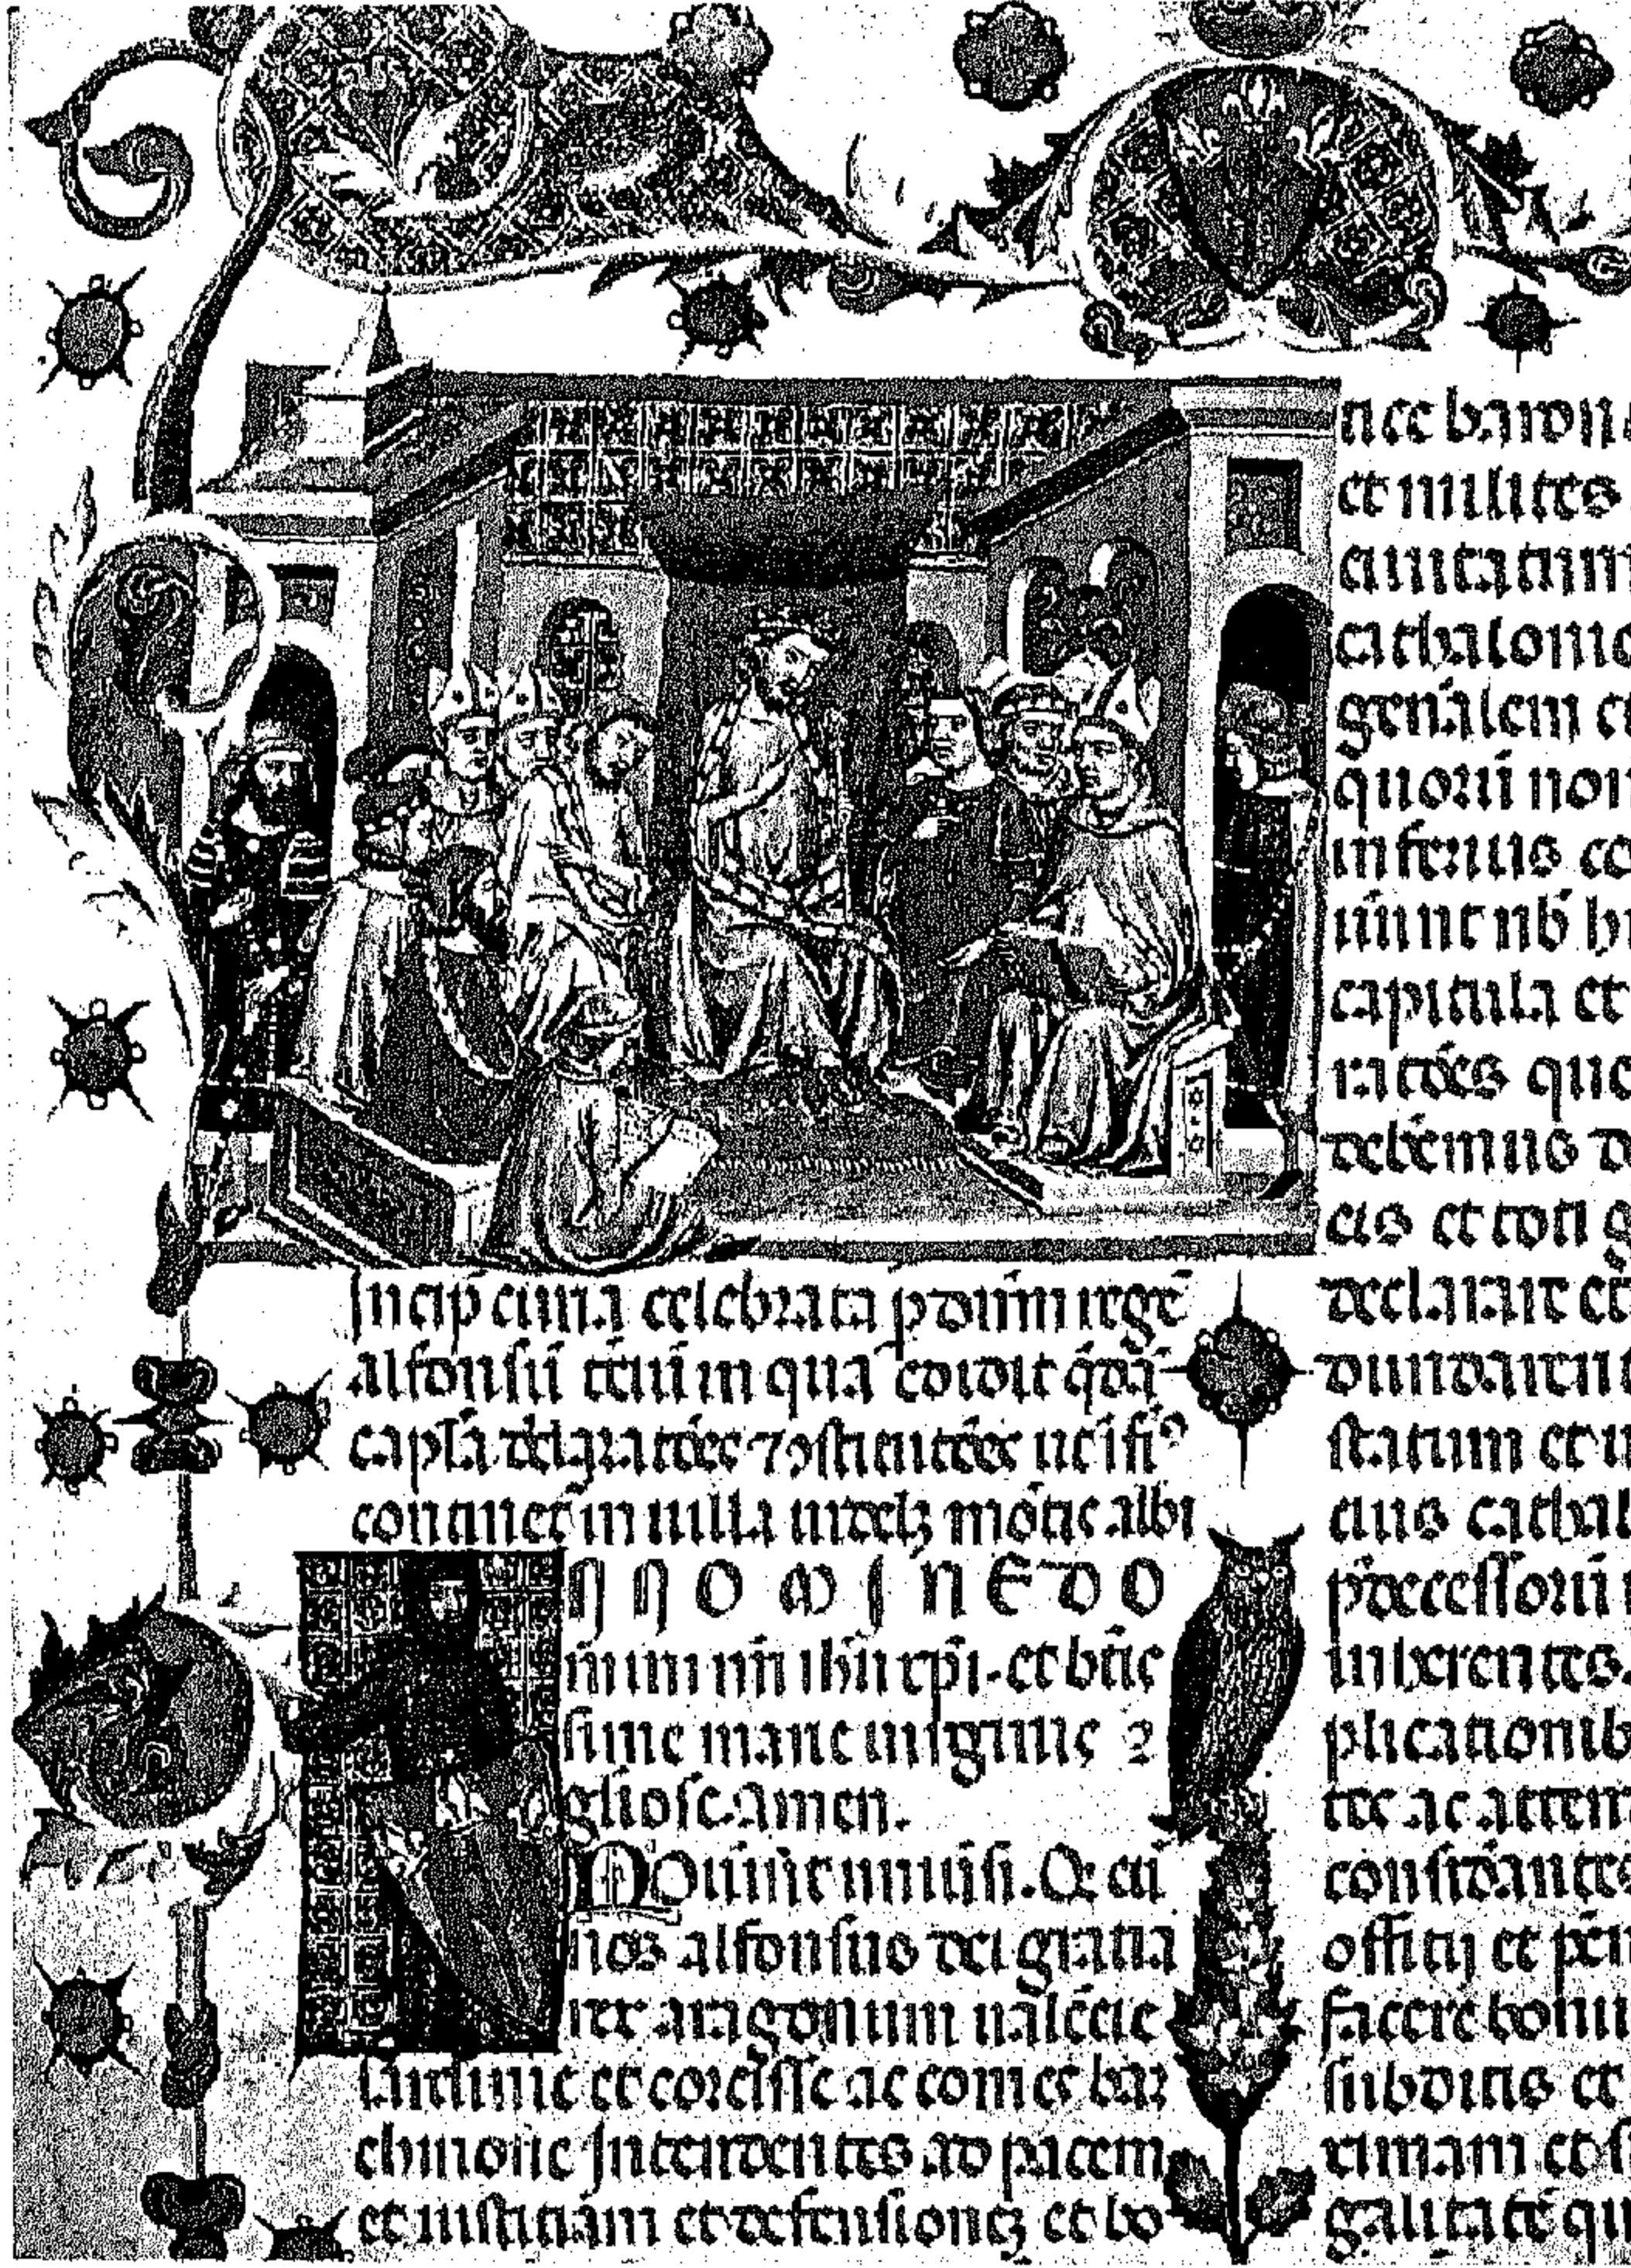 Incip̄ curia celebrata p dūm regē
alfonsū t̄ciū in qua cōdidit q̄dā
capl̄a declaratōes ⁊ ꝯstitutōes ut ifiꝰ
continet̄ in uilla uidelꝫ mōtis albi
IN NOMINE DO
mini nr̄i ihū xp̄i. et bt̄is
sime marie uirginis ⁊
gl̄iose. Amen.
Nouint uniūsi. Qꝫ cū
nos alfonsus dei gratia
rex aragonum ualēcie
sardinie et corsice ac comes bar
chinone Intendentes ad pacem
et iustitiam et defensionēꝫ et bo
tice baron
et milites
ciuitatum
cathalonie
gen̄alem et
quorū nom
inferius co
uiunt nb̄ h
capitula et
ratōes que
debemus de
eis et toti g
declarare et
duntaxat
statum et u
eius cathal
p̄decessorū
inherentes.
plicationib
tes ac atten
considāntes
offitij et
facere bonu
subditis et
timam et si
galitatē qu